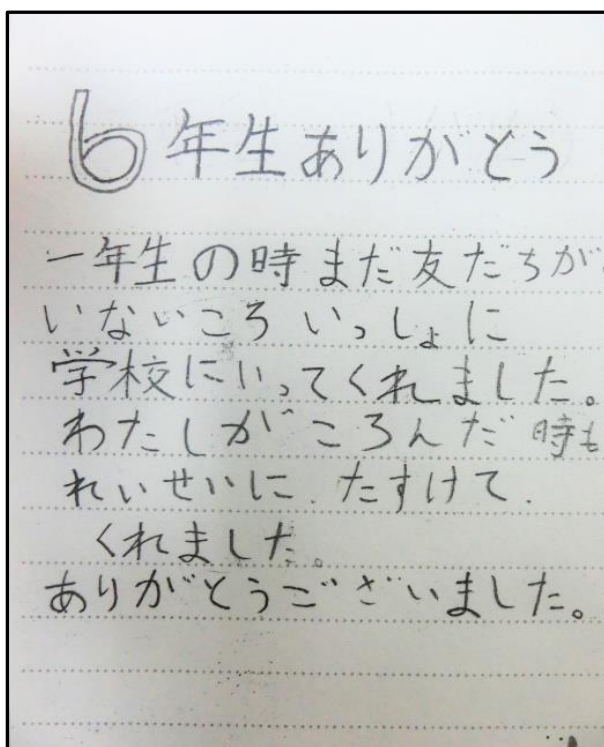 6年生ありがとう
一年生の時まだ友だちが
いないころいっしょに
学校にいってくれました。
わたしがころんだ時も
れいせいに、たすけて
くれました。
ありがとうございました。